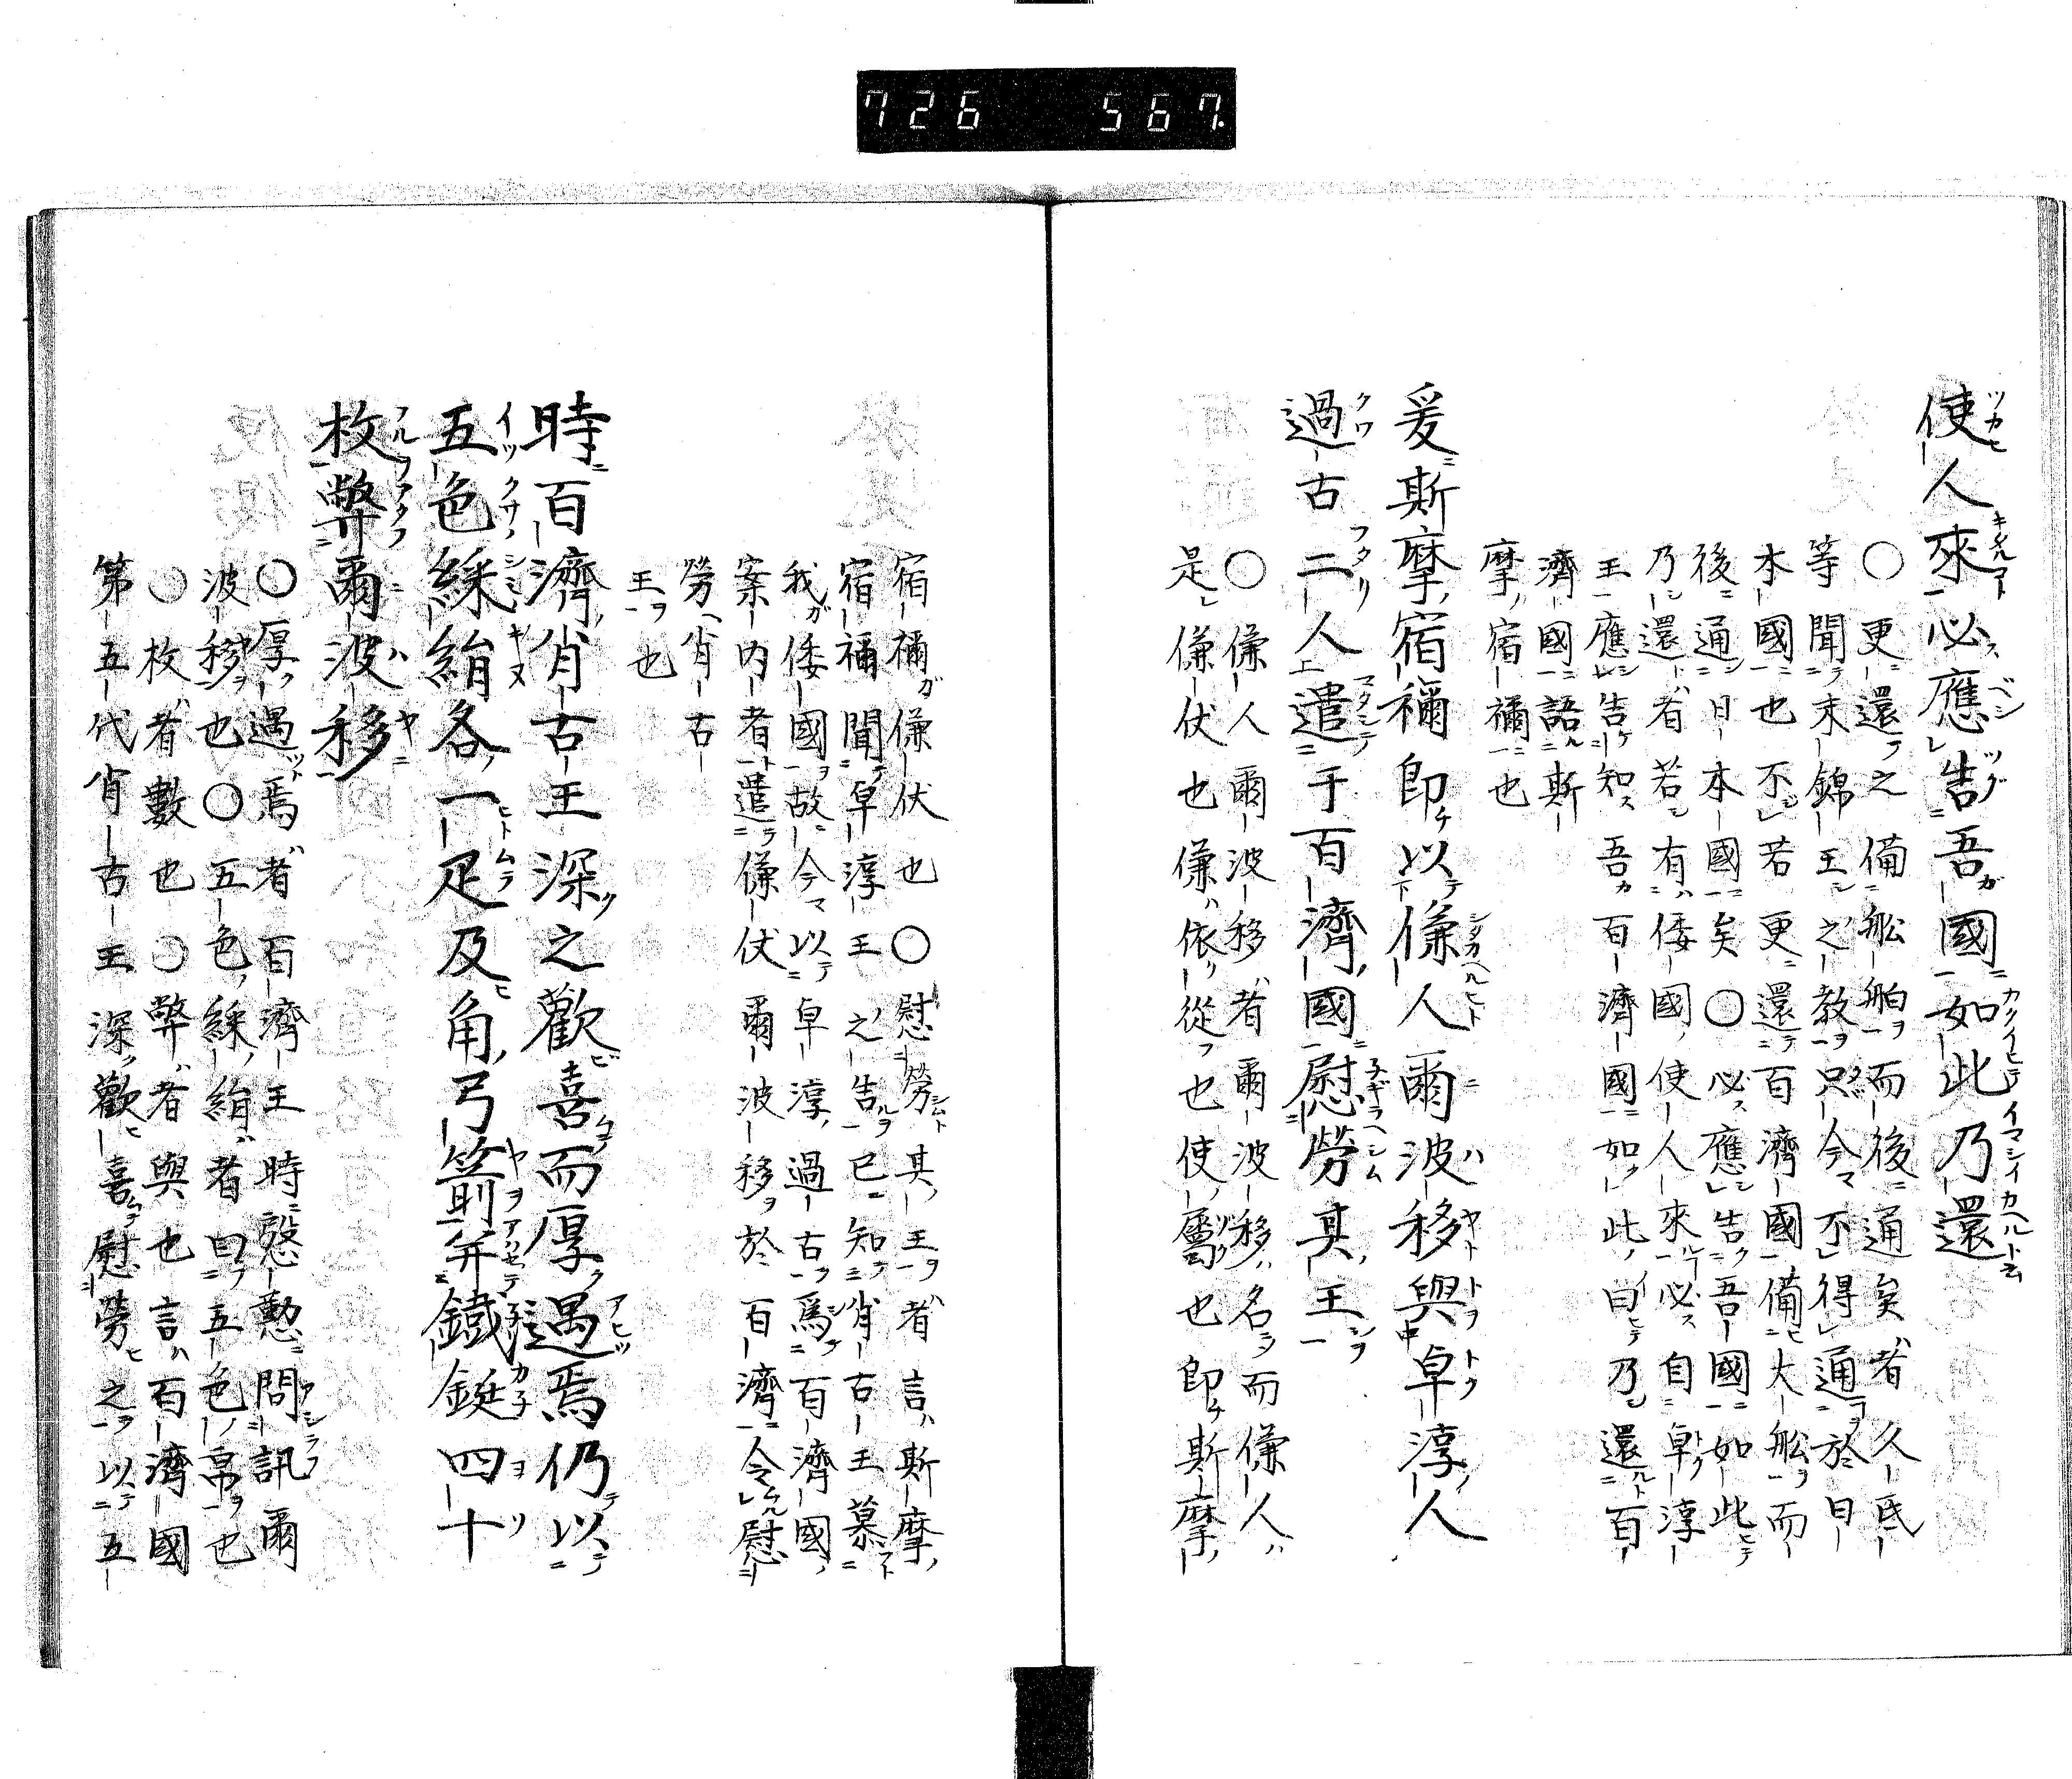 726 567.
使人來必應告吾國如此乃還
○更還之備舩舶而後通矣者久氐
等聞末錦王之教只今不得通於日
本國也不若更還百濟國備大舩而
後通日本國矣○必應告吾國如此
乃還者若有倭國使人來必自卓淳
王應告知吾百濟國如此曰乃還百
濟國語斯
摩宿禰也
爰斯摩宿禰即以傔人爾波移與卓淳人
過古二人遣于百濟國慰勞其王
○傔人爾波移者爾波移名而傔人
是傔仗也傔依從也使屬也即斯摩
宿禰傔仗也○慰勞其王者言斯摩
宿禰聞卓淳王之告已知肖古王慕
我倭國故今以卓淳過古爲百濟國
案内者遣傔仗爾波移於百濟令慰
勞肖古
王也
時百濟肖古王深之歡喜而厚遇焉仍以
五色綵絹各一疋及角弓箭并鐵鋌四十
枚幣爾波移
○厚遇焉者百濟王時慇懃問訊爾
波移也○五色綵絹者曰五色帛也
○枚者數也○幣者與也言百濟國
第五代肖古王深歡喜慰勞之以五